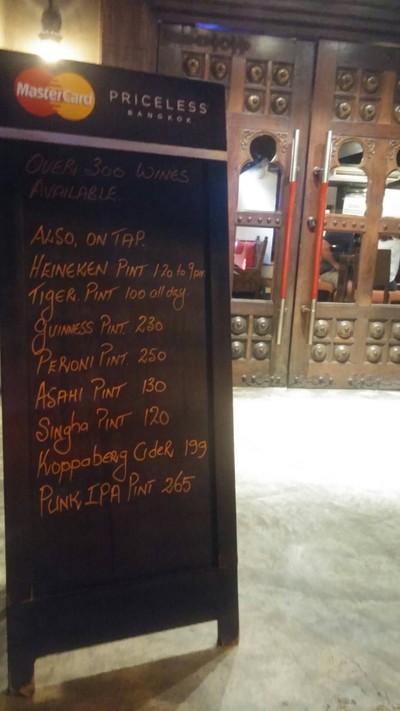 MasterCard
PRICELESS
BANGKOK
OVER 300 WINES
AVAILABLE.
ALSO, ON TAP.
HEINEKEN PINT 120 to 9pm
TIGER. PINT 100 all day.
GUINNESS PINT. 230
PERIONI PINT. 250
ASAHI PINT 130
Singha PINT 120
Koppaberg CideR 199
PUNK IPA PINT 265